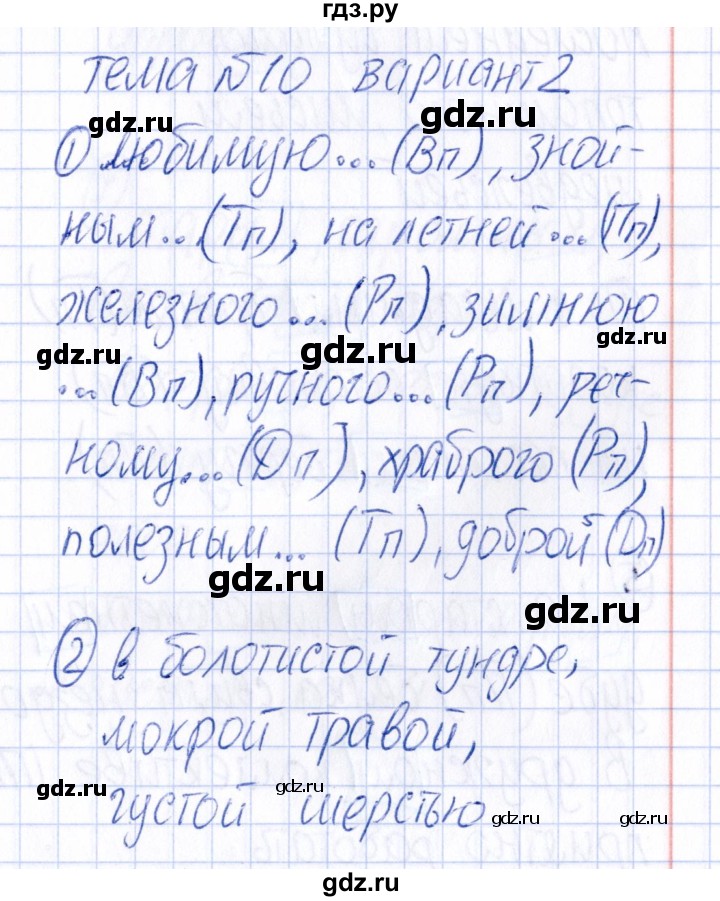 гдз.ру
тема №10 вариант 2
gdz.ru gdz.ru
① любимую... (Вп), зной-
ным... (Тп), на летней... (Пп),
gdz.ru gdz.ru
железного... (Рп), зимнюю
gdz.ru gdz.ru gdz.ru
... (Вп), ручного... (Рп), реч-
ному... (Дп), храброго (Рп),
gdz.ru gdz.ru
полезным... (Тп), доброй (Дп)
gdz.ru gdz.ru
② в болотистой тундре,
мокрой травой,
gdz.ru gdz.ru
густой шерстью
gdz.ru gdz.ru
gdz.ru